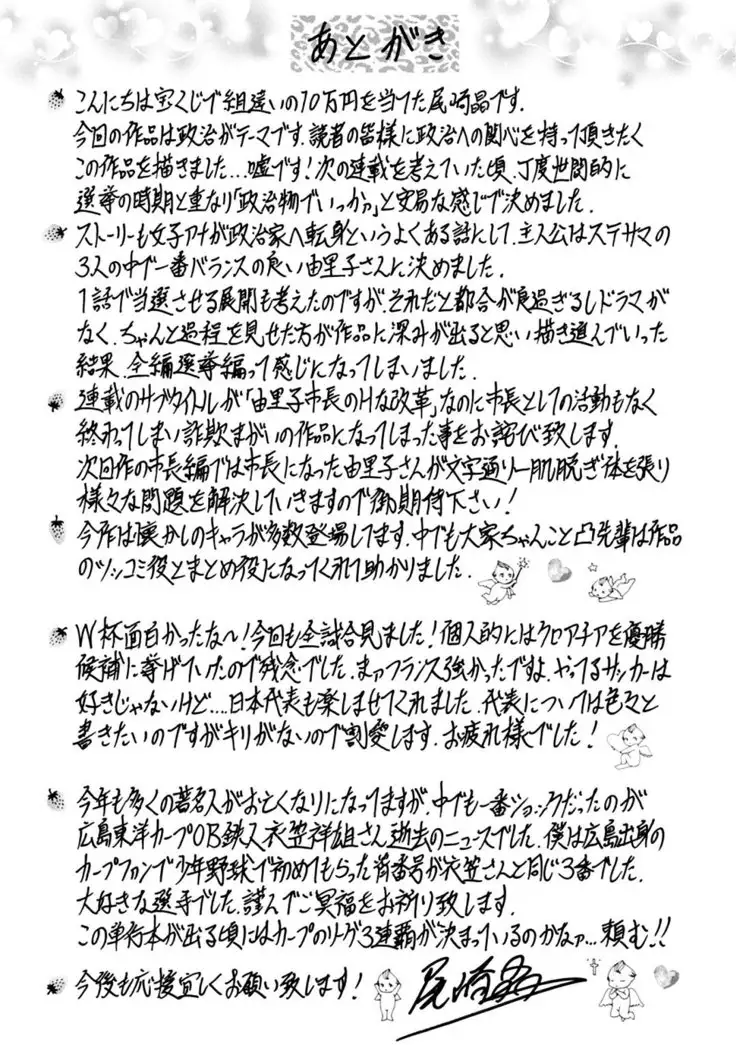 あとがき
こんにちは宝くじで組違いの10万円を当てた尾崎晶です.
今回の作品は政治がテーマです.読者の皆様に政治への関心を持って頂きたく
この作品を描きました…嘘です!次の連載を考えていた頃.丁度世間的に
選挙の時期と重なり「政治物でいっか」と安易な感じで決めました.
ストーリーも女子アナが政治家へ転身というよくある話にして.主人公はステサマの
3人の中で一番バランスの良い由里子さんに決めました.
1話で当選させる展開も考えたのですが.それだと都合が良過ぎるしドラマが
なく.ちゃんと過程を見せた方が作品に深みが出ると思い描き進んでいった
結果.全編選挙編って感じになってしまいました.
連載のサブタイトルが「由里子市長のHな改革」なのに市長としての活動もなく
終わってしまい詐欺まがいの作品になってしまった事をお詫び致します.
次回作の市長編では市長になった由里子さんが文字通り一肌脱ぎ体を張り
様々な問題を解決していきますので御期待下さい!
今作は懐かしのキャラが多数登場してます.中でも大家ちゃんこと凸先輩は作品
のツッコミ役とまとめ役になってくれて助かりました.
W杯面白かったな〜!今回も全試合見ました!個人的にはクロアチアを優勝
候補に挙げていたので残念でした.まァフランス強かったですよ.やってるサッカーは
好きじゃないけど…日本代表も楽しませてくれました.代表については色々と
書きたいのですがキリがないので割愛します.お疲れ様でした!
今年も多くの著名人がお亡くなりになってますが.中でも一番ショックだったのが
広島東洋カープOB鉄人衣笠祥雄さん逝去のニュースでした.僕は広島出身の
カープファンで少年野球で初めてもらった背番号が衣笠さんと同じ3番でした.
大好きな選手でした.謹んでご冥福をお祈り致します.
この単行本が出る頃にはカープのリーグ3連覇が決まっているのかなァ…頼む!!
今後も応援宜しくお願い致します!
尾崎晶